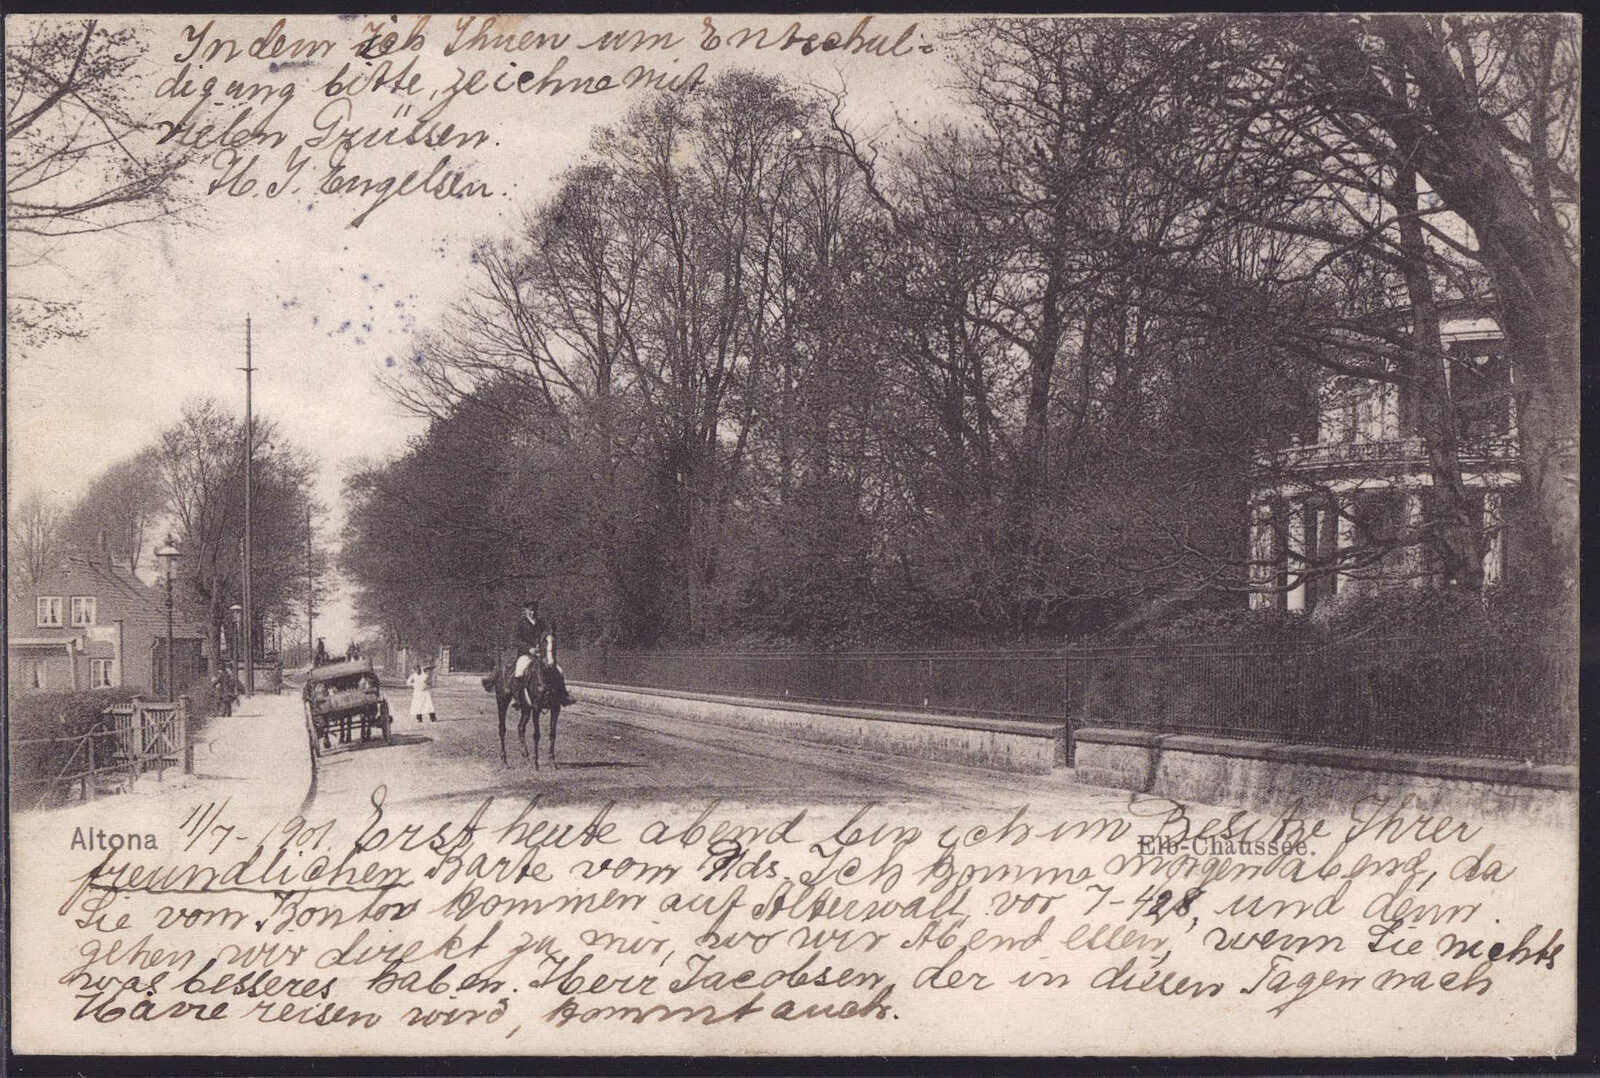 In dem Ich Ihnen um Entschul-
digung bitte, zeichne mit
vielen Grüssen.
H. J. Engelsen.
Altona
11/7-1901. Erst heute abend bin ich im Besitze Ihrer
Elb-Chaussee.
freundlichen Karte vom 9/ds. Ich komme morgen abend, da
Sie vom Kontor kommen auf Alterwall, vor 7-428, und denn
gehen wir direkt zu mir, wo wir Abend essen, wenn Sie nichts
was besseres haben. Herr Jacobsen, der in diesen Tagen nach
Havre reisen wird, kommt auch.